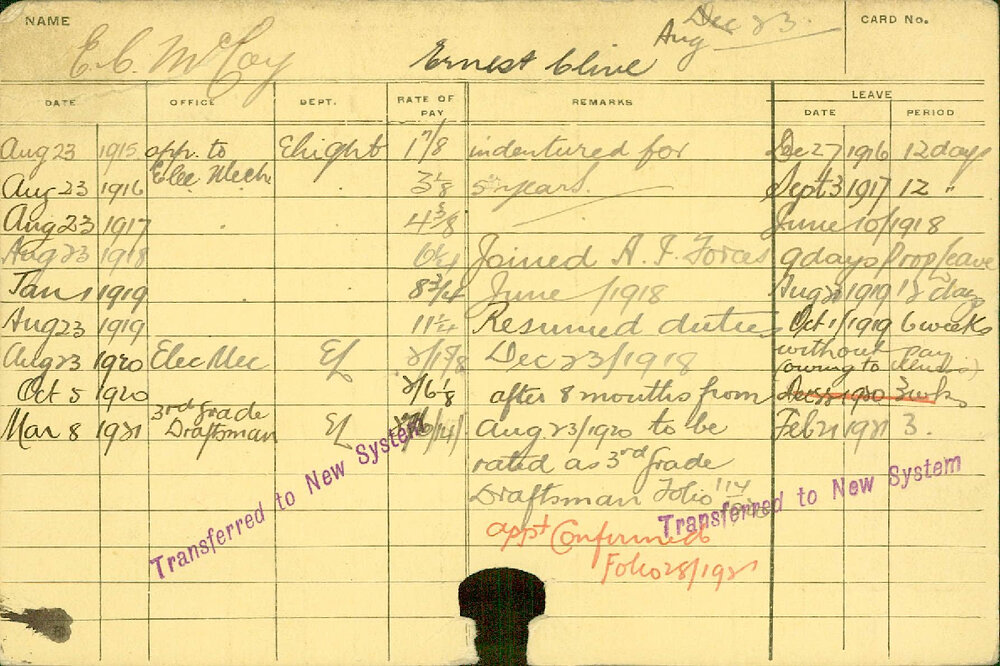 NAME E. C. McCoy Ernest Clive Aug Dec 23 CARD No.
DATE OFFICE DEPT. RATE OF PAY REMARKS LEAVE DATE PERIOD
Aug 23 1915 app. to Elec Mech Elight 1 7/8 indentured for Dec 27 1916 12 days
Aug 23 1916 3 1/8 5 years. Sept 3 1917 12 "
Aug 23 1917 4 3/8 June 10/1918
Aug 23 1918 6 1/4 Joined A. I. Forces 9 days Prop leave
Jan 1 1919 8 3/4 June /1918 Aug 1919 12 days
Aug 23 1919 11 1/4 Resumed duties Oct 1/1919 6 weeks
Aug 23 1920 Elec Mec EL Dec 23/1918 without pay (owing to illness)
Oct 5 1920 2/6 1/8 after 8 months from 1920 3 wks
Mar 8 1921 3rd Grade Draftsman EL Aug 23/1920 to be Feb 21 1921 3.
rated as 3rd Grade
Draftsman Folio
Transferred to New System
Transferred to New System
appt Confirmed
Folio 28/1921